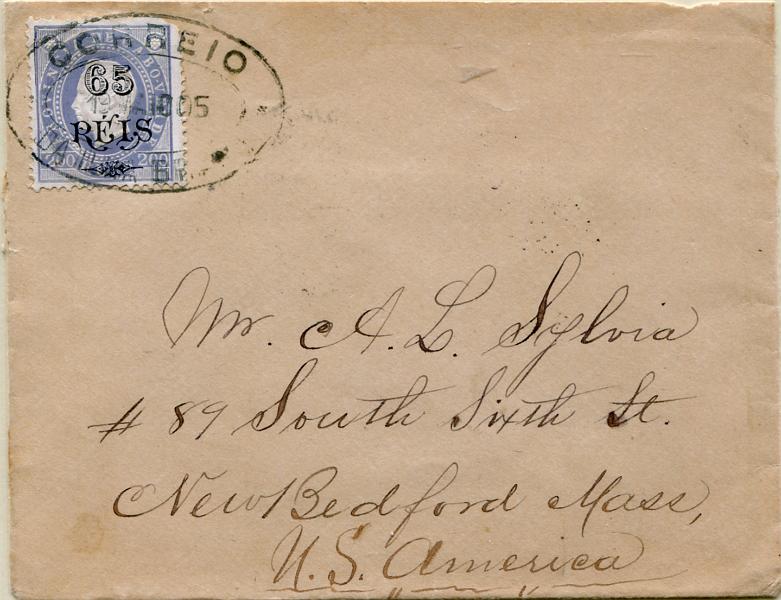 CORREIO
65
RÉIS
200
Mr. A. L. Sylvia
# 89 South Sixth St.
New Bedford Mass,
U.S. America